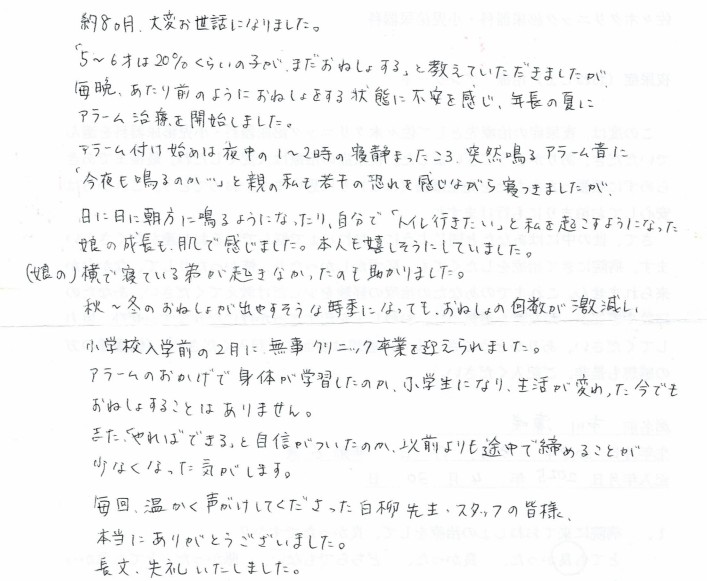 約8ヶ月、大変お世話になりました。
「5〜6才は20%くらいの子が、まだおねしょする」と教えていただきましたが、
毎晩、あたり前のようにおねしょをする状態に不安を感じ、年長の夏に
アラーム治療を開始しました。
アラーム付け始めは夜中の1〜2時の寝静まったころ、突然鳴るアラーム音に
「今夜も鳴るのか…」と親の私も若干の恐れを感じながら寝つきましたが、
日に日に朝方に鳴るようになったり、自分で「トイレ行きたい」と私を起こすようになった
娘の成長も肌で感じました。本人も嬉しそうにしていました。
(娘の)横で寝ている弟が起きなかったのも助かりました。
秋〜冬のおねしょが出やすそうな時季になっても、おねしょの回数が激減し、
小学校入学前の2月に、無事クリニック卒業を迎えられました。
アラームのおかげで身体が学習したのか、小学生になり、生活が変わった今でも
おねしょすることはありません。
また、「やればできる」と自信がついたのか、以前よりも途中で締めることが
少なくなった気がします。
毎回、温かく声がけしてくださった白柳先生・スタッフの皆様、
本当にありがとうございました。
長文、失礼いたしました。